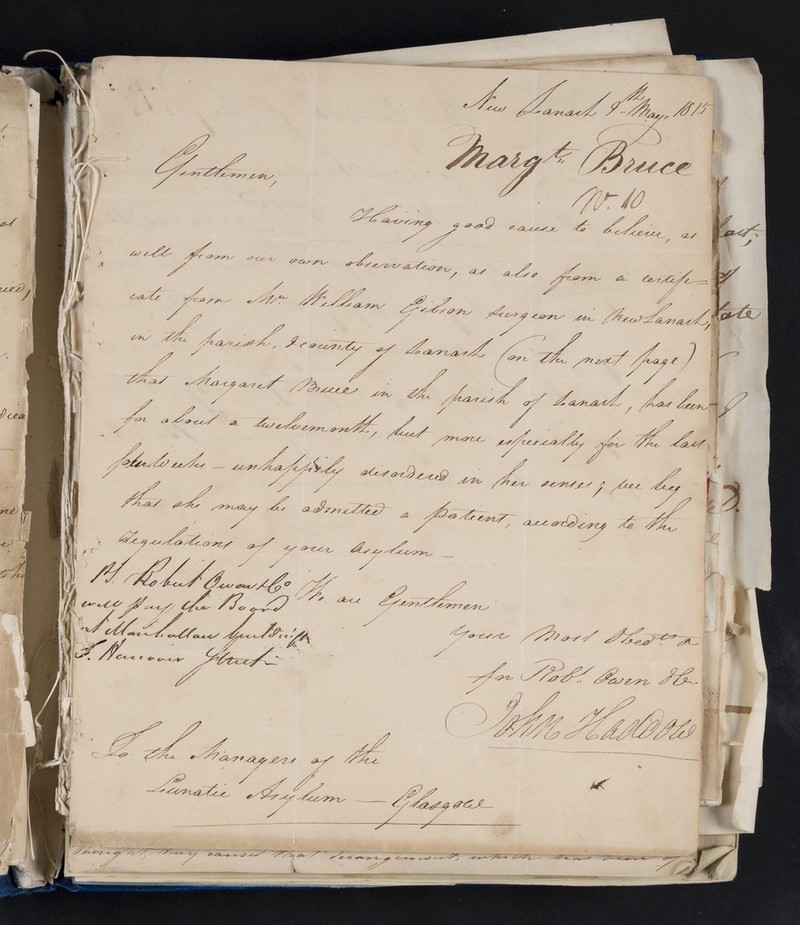 New Lanark 9th May, 1815
Margt. Bruce
No. 10
Gentlemen,
Having good cause to believe, as
well from our own observation, as also from a certifi=
cate from Mr. William Gibson Surgeon in New Lanark,
in the parish & county of Lanark (on the next page)
that Margaret Bruce in the parish of Lanark, has been
for about a twelvemonth, but more especially for the last
weeks – unhappily disordered in her senses; we beg
that she may be admitted a patient, according to the
regulations of your Asylum –
We are Gentlemen
Your Most Obedt.
for Robt. Owen & Co
John Haddow
P.S. Robert Owen & Co
will pay the Board
Hanover Street –
To the Managers of the
Lunatic Asylum — Glasgow
thought, may cause that derangement, which has been